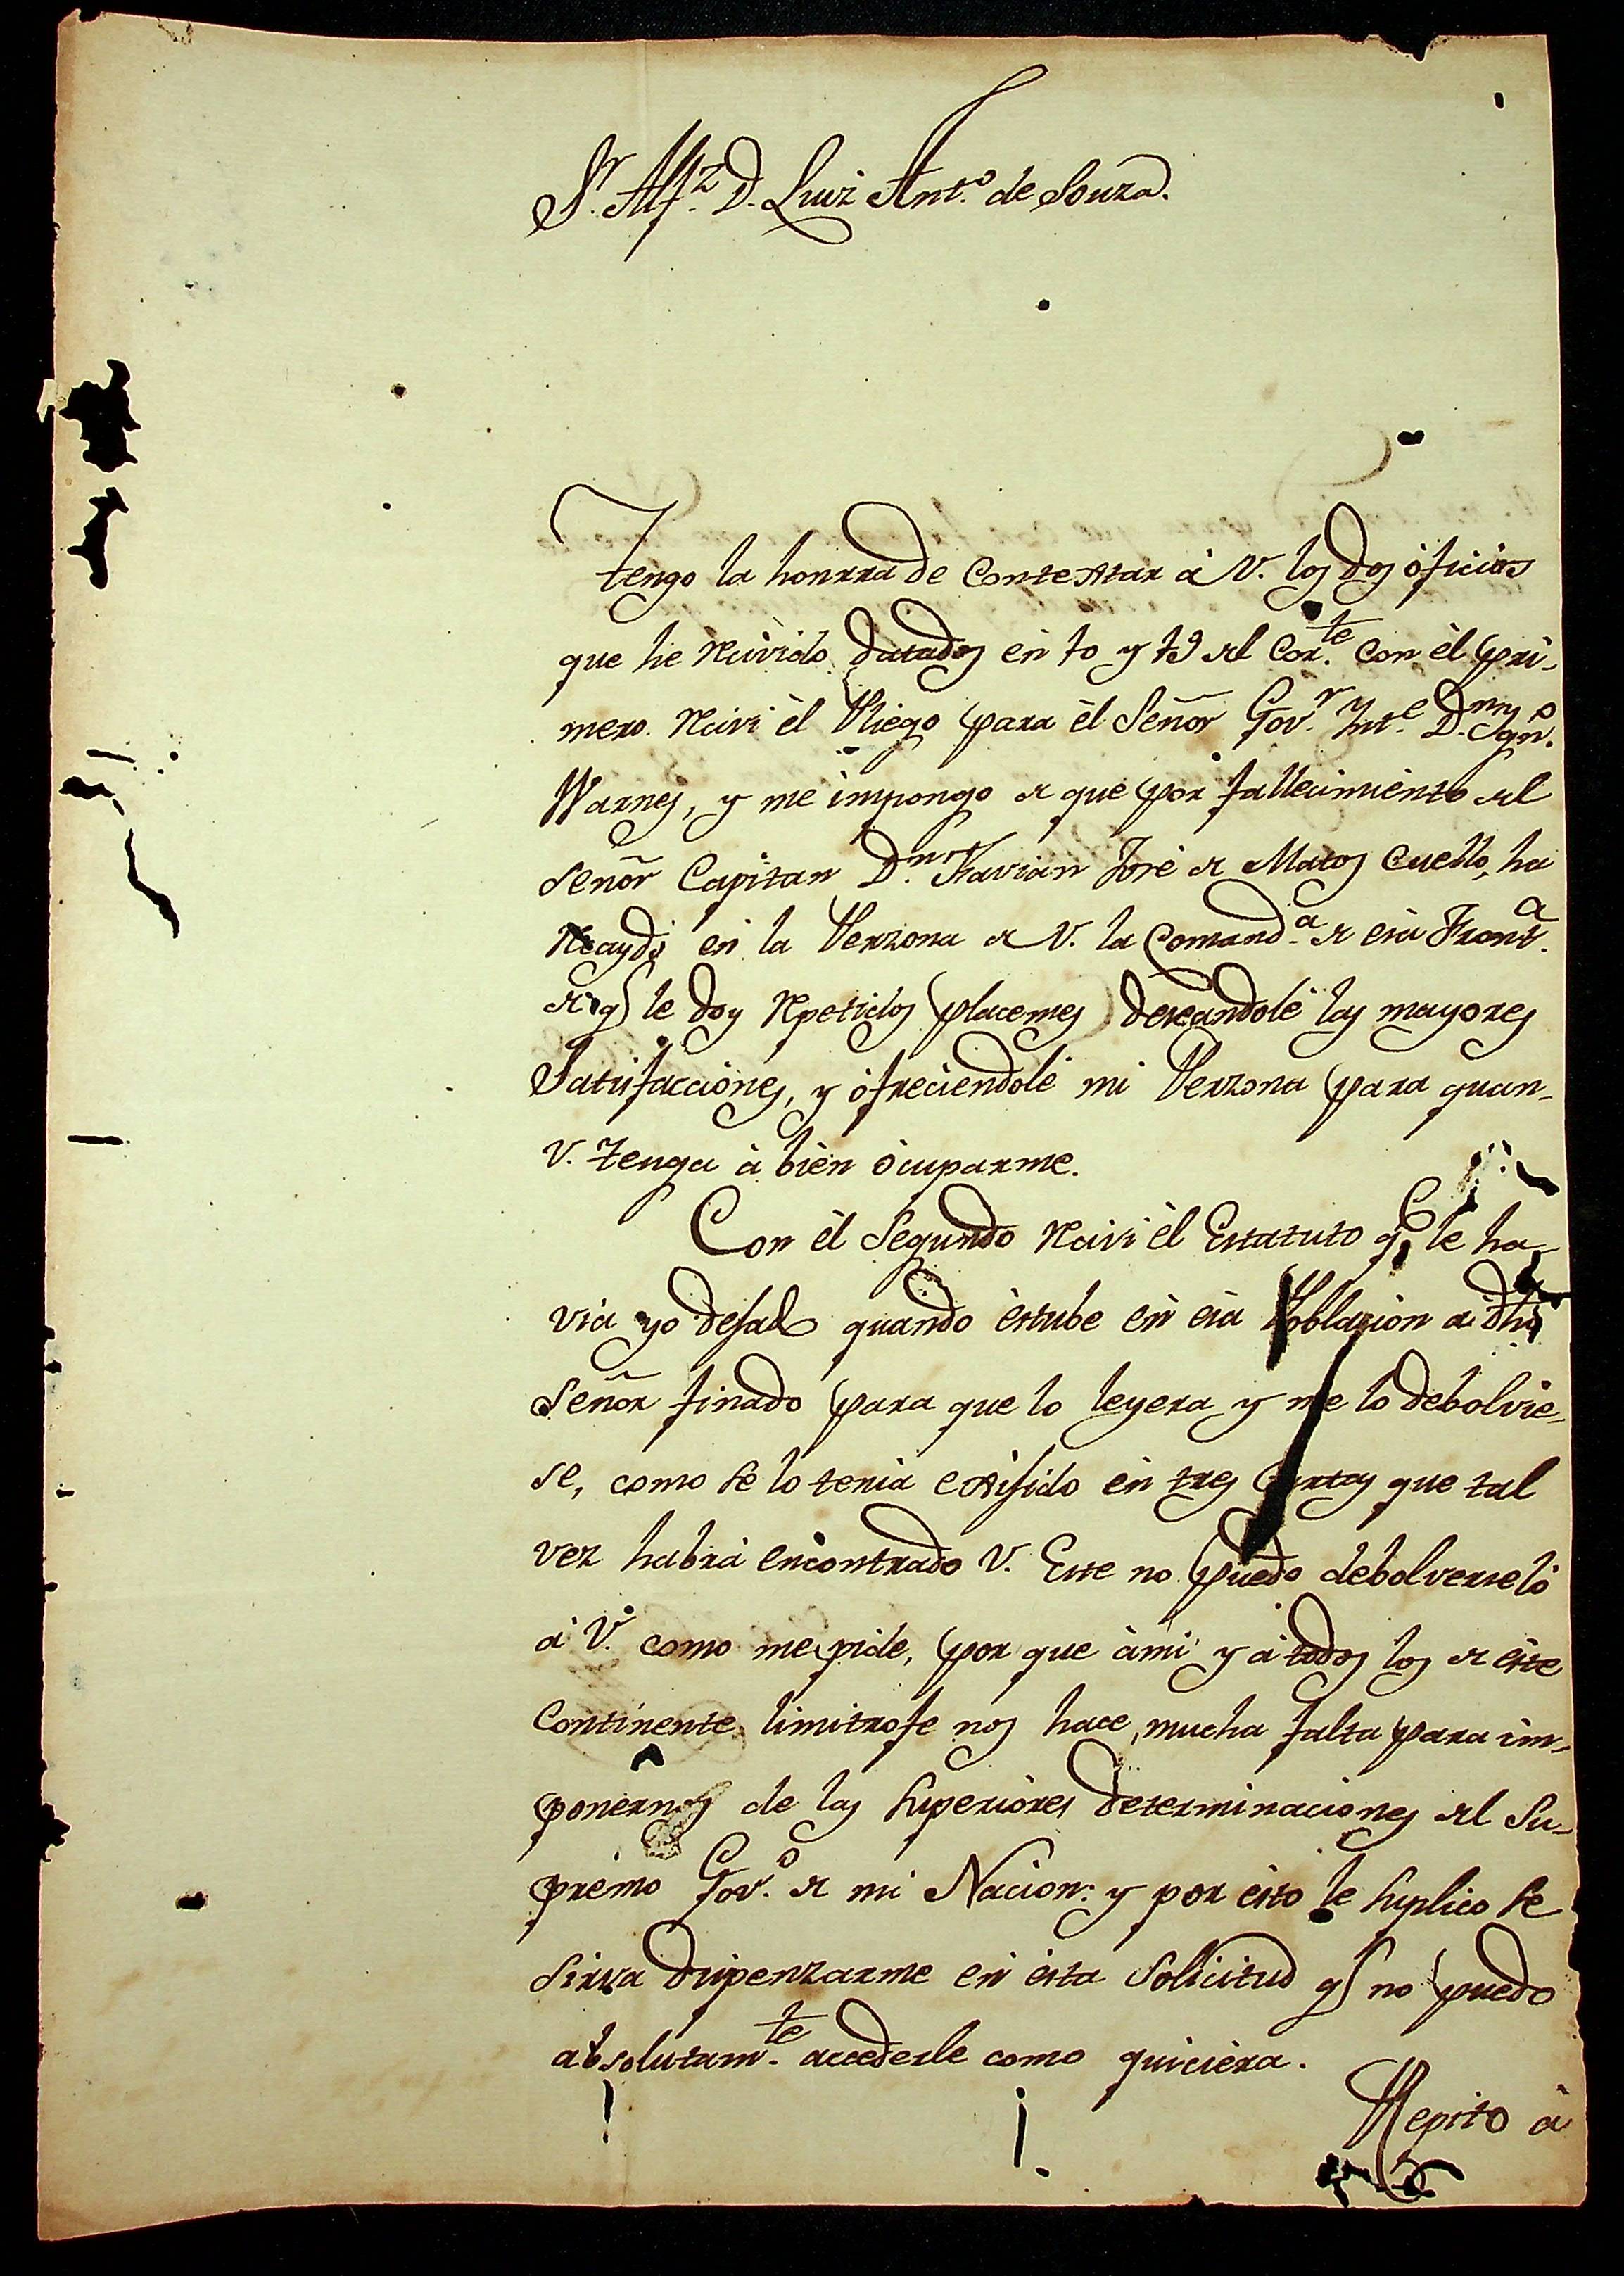 S.r Alf.z D. Luiz Ant.o de Souza.
Tengo la honrra de Contextar à V. los dos òficios
que he Recivido datados èn 10 y 19 del Cor.te Con èl pri-
mero. Recivi èl Pliego para èl Señor Gov.r Int.e D.n Ygn.o
Warnes, y me impongo de que por fallecimiento del
Señor Capitan D.n Xavian José de Matos Cuello, ha
Recaydo en la Perzona de V. la Comand.a de esa Front.a
de q.e le doy Repetidos placemes deseandole las mayores
Satisfacciones, y òfreciendole mi Perzona para quan-
V. Tenga à bien òcuparme.
Con èl Segundo Recivi èl Estatuto q.e le ha-
via yo dejado quando èstube èn esa Poblacion a dho
Señor finado para que lo leyera y me lo debolvie-
se, como se lo tenia exijido èn tres Cartas que tal
vez habrà encontrado V. Este no puedo debolverselo
à V. como me pide, por que àmi y à todos los de èste
Continente limitrofe nos hace mucha falta para im-
ponernos de las Superiores determinaciones del Su-
premo Gov.o de mi Nacion: y por èsto le Suplico se
Sirva dispenzarme en èsta Solicitud q.e no puedo
absolutam.te accederle como quiciera.
Repito à